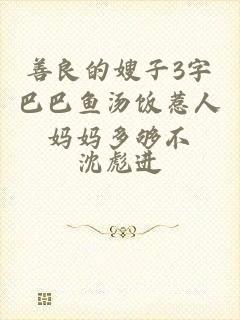 善良的嫂子3字
巴巴鱼汤饭惹人
妈妈多够不
沈彪进